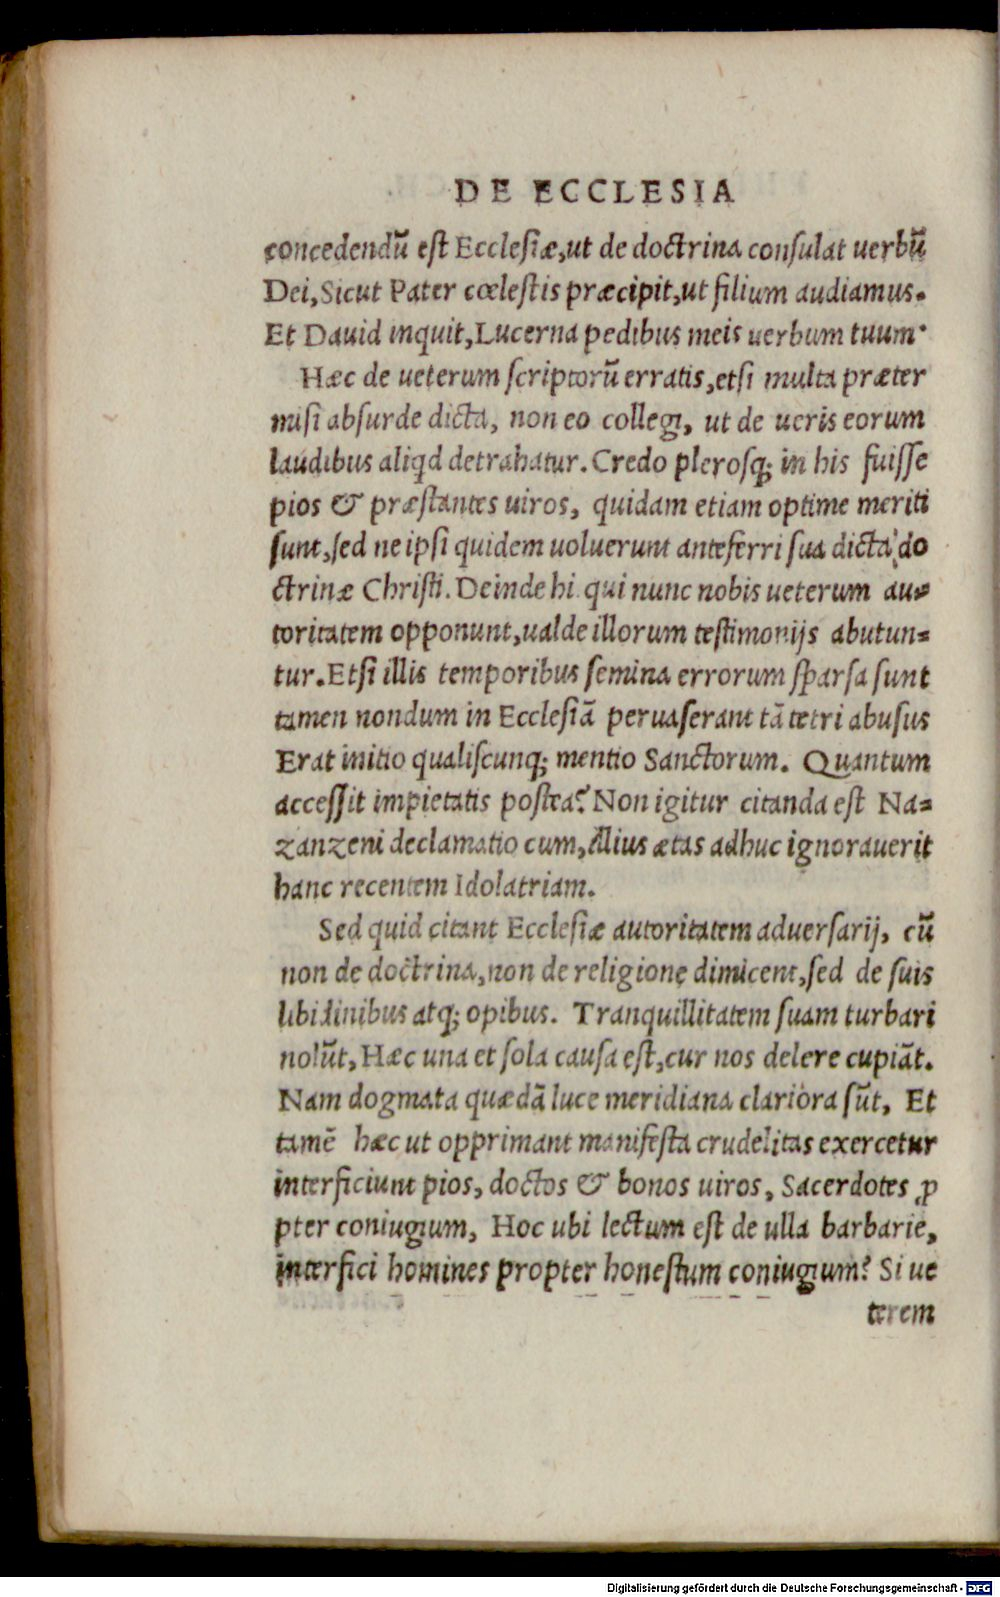 DE ECCLESIA
concedendũ est Ecclesiæ,ut de doctrina consulat uerbũ
Dei,Sicut Pater cœlestis præcipit,ut filium audiamus.
Et Dauid inquit,Lucerna pedibus meis uerbum tuum.
Hæc de ueterum scriptorũ erratis,etsi multa præter
misi absurde dicta, non eo collegi, ut de ueris eorum
laudibus aliqd detrahatur. Credo plerosq; in his fuisse
pios & præstantes uiros, quidam etiam optime meriti
sunt,sed ne ipsi quidem uoluerunt anteferri sua dicta do
ctrinæ Christi. Deinde hi qui nunc nobis ueterum au-
toritatem opponunt,ualde illorum testimonijs abutun=
tur. Etsi illis temporibus semina errorum sparsa sunt
tamen nondum in Ecclesiã peruaserant tã tetri abusus
Erat initio qualiscunq; mentio Sanctorum. Quantum
accessit impietatis postea? Non igitur citanda est Na=
zanzeni declamatio cum, illius ætas adhuc ignorauerit
hanc recentem Idolatriam.
Sed quid citant Ecclesiæ autoritatem aduersarij, cũ
non de doctrina,non de religione dimicent,sed de suis
libidinibus atq; opibus. Tranquillitatem suam turbari
nolũt, Hæc una et sola causa est,cur nos delere cupiãt.
Nam dogmata quædã luce meridiana clariora sũt, Et
tamẽ hæc ut opprimant manifesta crudelitas exercetur
interficiunt pios, doctos & bonos uiros, Sacerdotes ꝓ
pter coniugium, Hoc ubi lectum est de ulla barbarie,
interfici homines propter honestum coniugium? Si ue
terem
Digitalisierung gefördert durch die Deutsche Forschungsgemeinschaft - DFG